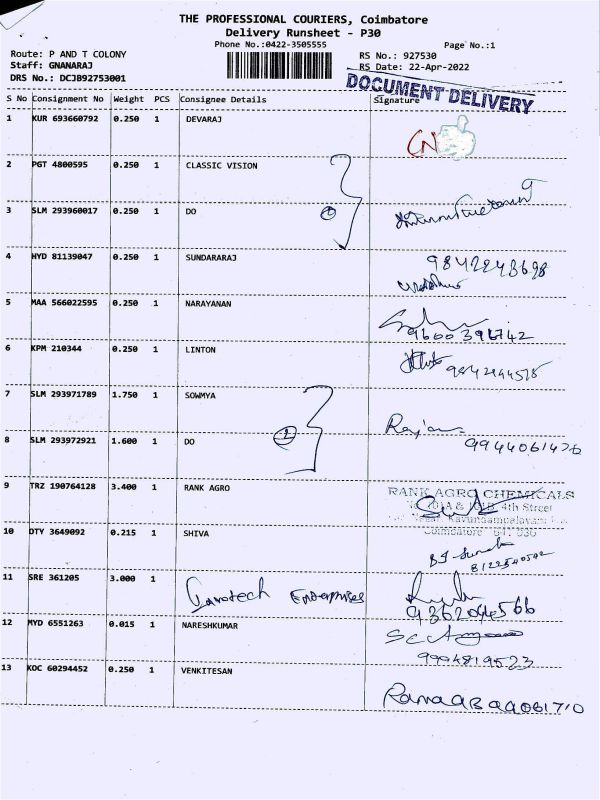 THE PROFESSIONAL COURIERS, Coimbatore
Delivery Runsheet - P30
Phone No.:0422-3505555
Page No.:1
Route: P AND T COLONY
RS No.: 927530
Staff: GNANARAJ
RS Date: 22-Apr-2022
DRS No.: DCJB92753001
DOCUMENT DELIVERY
S No Consignment No Weight PCS Consignee Details Signature
1 KUR 693660792 0.250 1 DEVARAJ
CN
2 PGT 4800595 0.250 1 CLASSIC VISION
3 SLM 293960017 0.250 1 DO
4 HYD 81139047 0.250 1 SUNDARARAJ
9842243698
5 MAA 566022595 0.250 1 NARAYANAN
9600396742
6 KPM 210344 0.250 1 LINTON
7 SLM 293971789 1.750 1 SOWMYA
8 SLM 293972921 1.600 1 DO
2
9944061426
9 TRZ 190764128 3.400 1 RANK AGRO
RANK AGRO CHEMICALS
4th Street
Coimbatore - 641 030
10 DTY 3649092 0.215 1 SHIVA
8122540542
11 SRE 361205 3.000 1 Enterprises
9362044566
12 MYD 6551263 0.015 1 NARESHKUMAR
9994819523
13 KOC 60294452 0.250 1 VENKITESAN